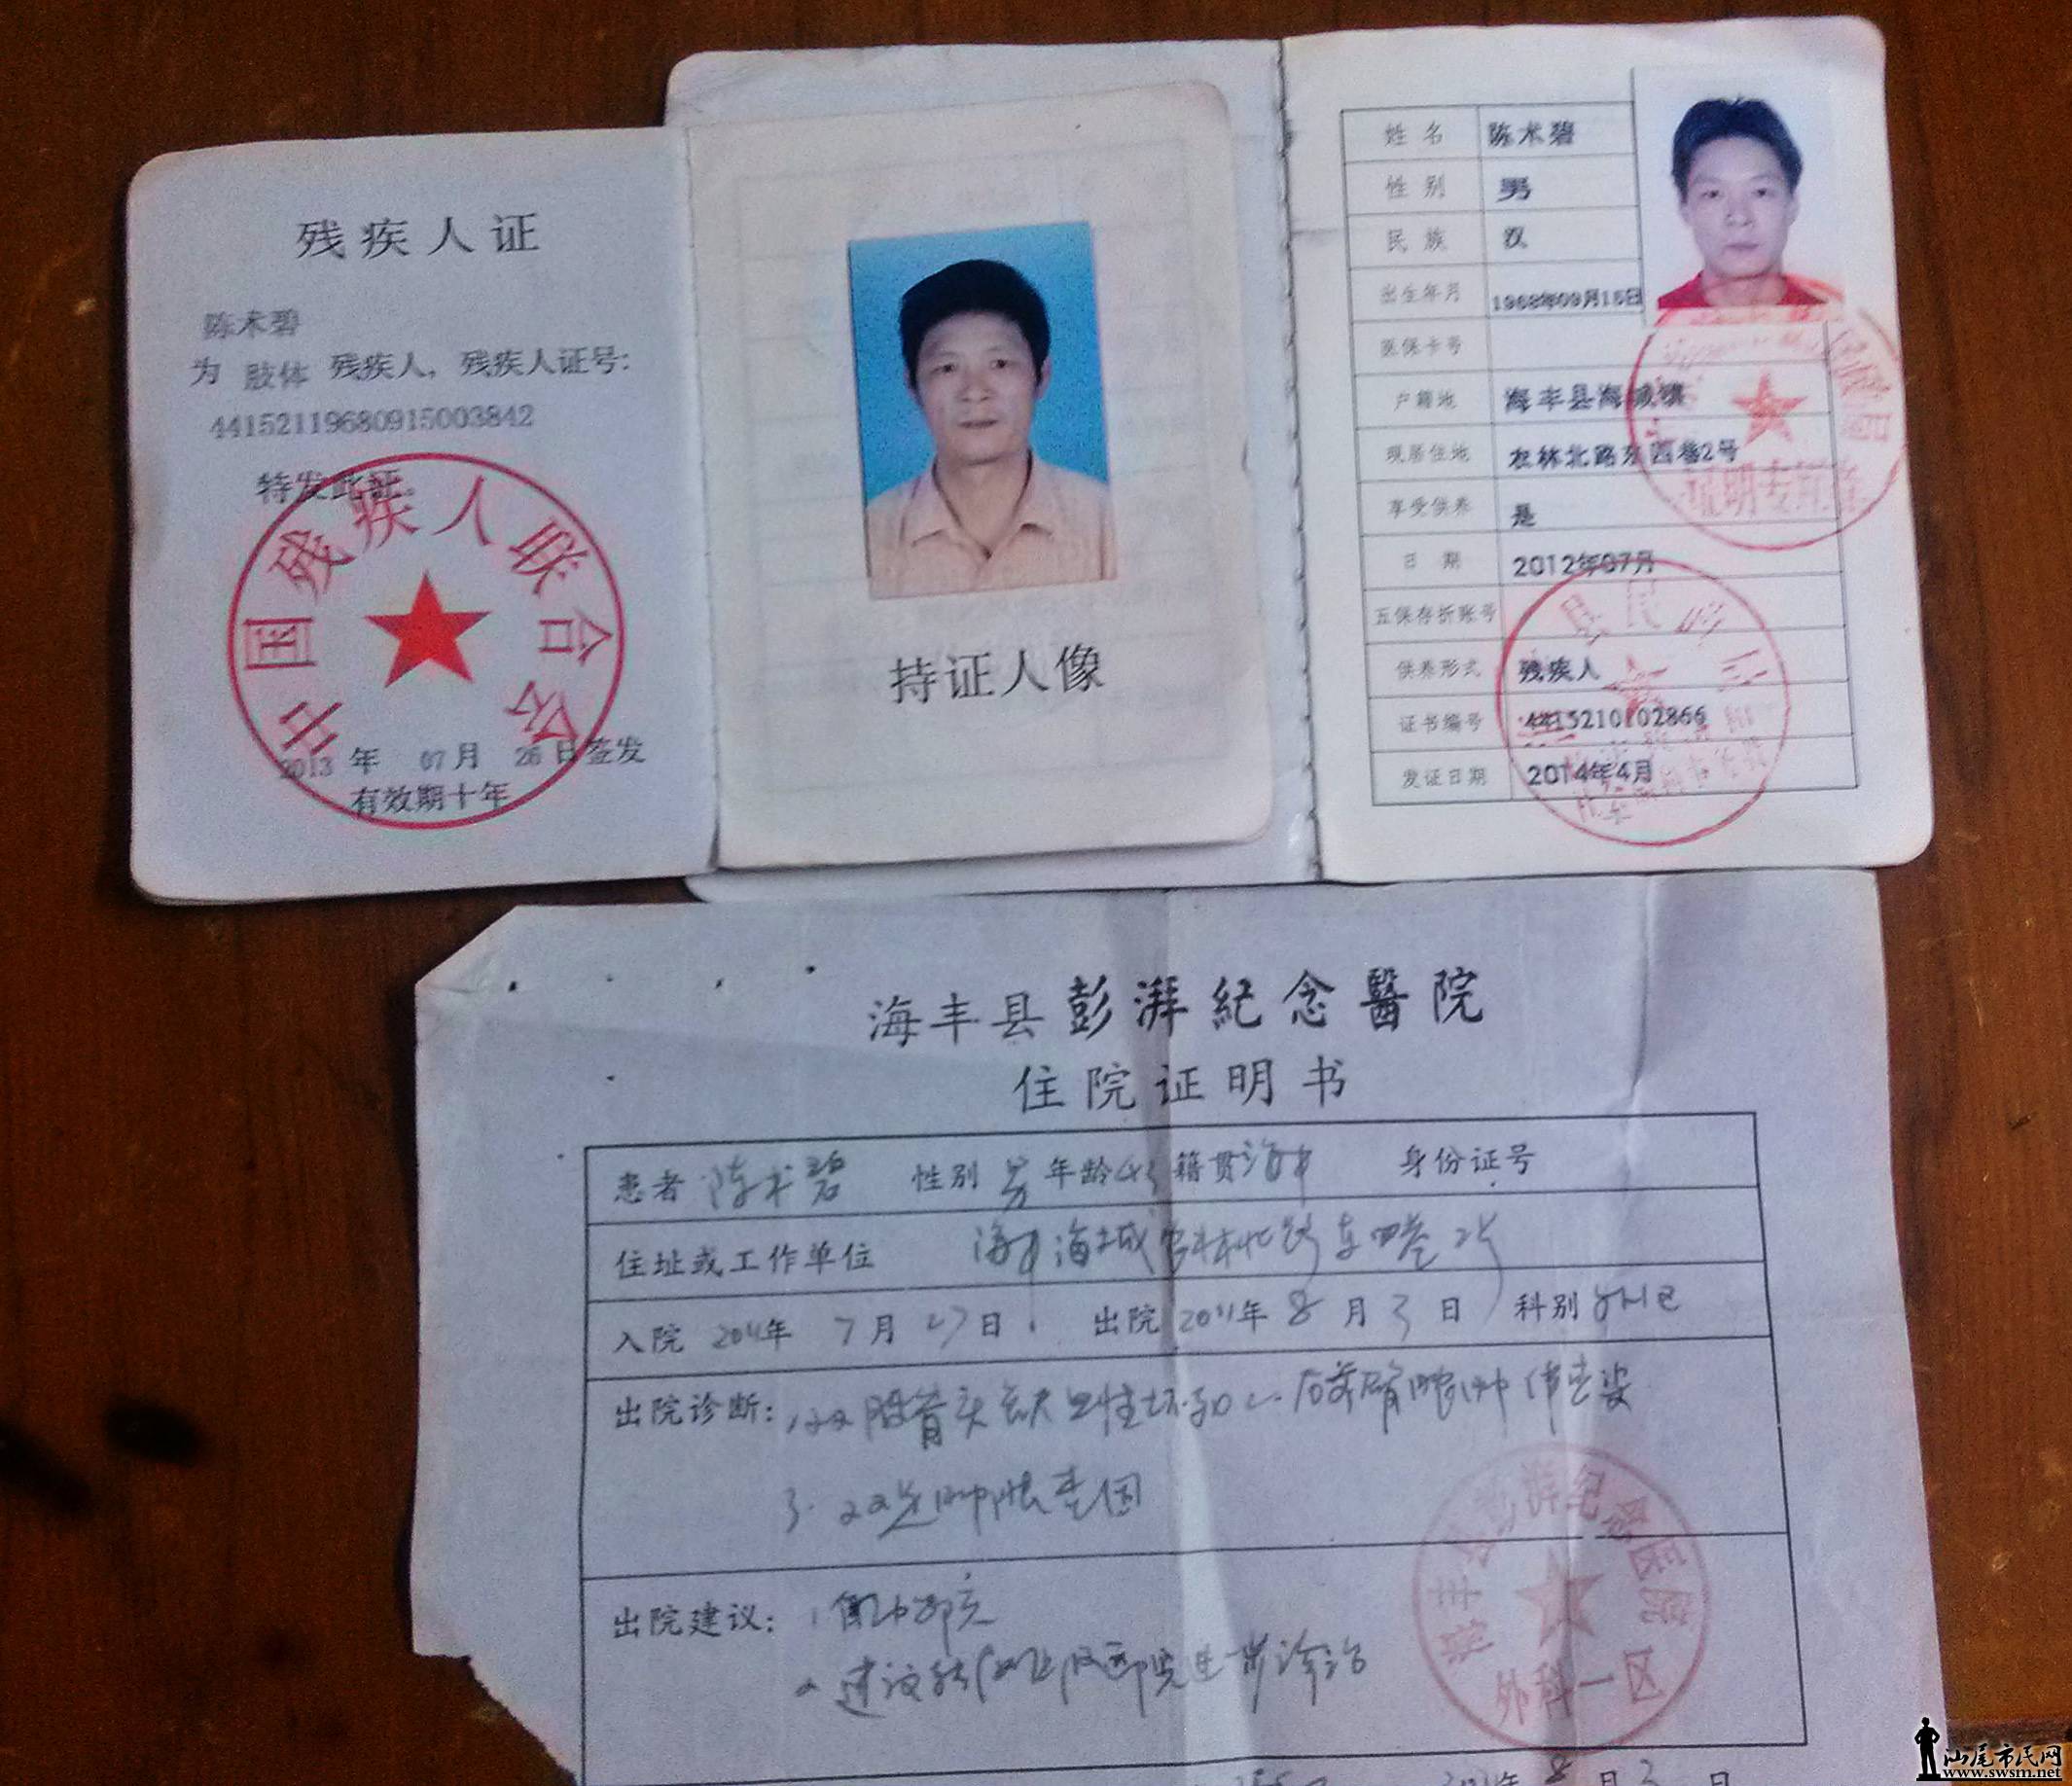 残疾人证
陈术碧
为 肢体 残疾人，残疾人证号：
44152119680915003842
特发此证。
中国残疾人联合会
2013 年 07月 26日签发
有效期十年
持证人像
姓名 陈术碧
性别 男
民族 汉
出生年月 1968年09月15日
医保卡号
户籍地 海丰县海城镇
现居住地 农林北路东四巷2号
享受供养 是
日期 2012年07月
五保存折账号
供养形式 残疾人
证书编号 4415210102866
发证日期 2014年4月
证明专用章
海丰县彭湃紀念醫院
住院证明书
患者 陈术碧 性别 男 年龄 43 籍贯 海丰 身份证号
住址或工作单位 海丰海城农林北路东四巷2号
入院 2011年 7月 27日 出院 2011年 8月 3日 科别
出院诊断：1.双股骨头缺血性坏死
3.
出院建议：1
2.建议转上级医院进一步诊治
彭湃纪念医院
外科一区
8月3日
汕尾市民网
www.swsm.net